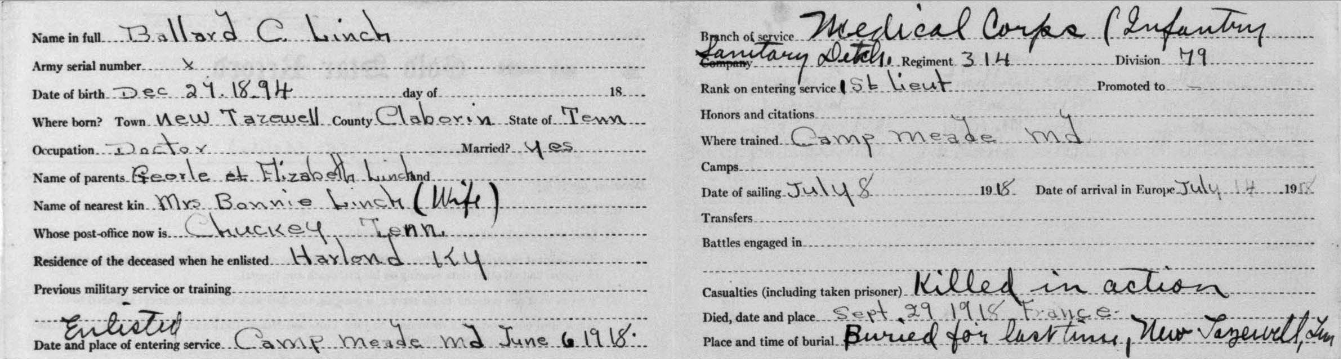 Name in full Ballard C. Linch
Army serial number x
Date of birth Dec 27. 18.94 day of 18
Where born? Town New Tazewell County Claborin State of Tenn
Occupation Doctor Married? yes
Name of parents George et Elizabeth Linch and
Name of nearest kin Mrs Bonnie Linch (Wife)
Whose post-office now is Chuckey Tenn.
Residence of the deceased when he enlisted Harland Ky
Previous military service or training
Enlisted
Date and place of entering service Camp Meade Md June 6 1918.
Branch of service Medical Corps (Infantry
Company Sanitary Detch. Regiment 314 Division 79
Rank on entering service 1st Lieut Promoted to –
Honors and citations
Where trained Camp Meade Md
Camps
Date of sailing July 8 1918 Date of arrival in Europe July 14 1918
Transfers
Battles engaged in
Casualties (including taken prisoner) Killed in action
Died, date and place Sept. 29 1918 France.
Place and time of burial Buried for last time, New Tazewell, Tenn